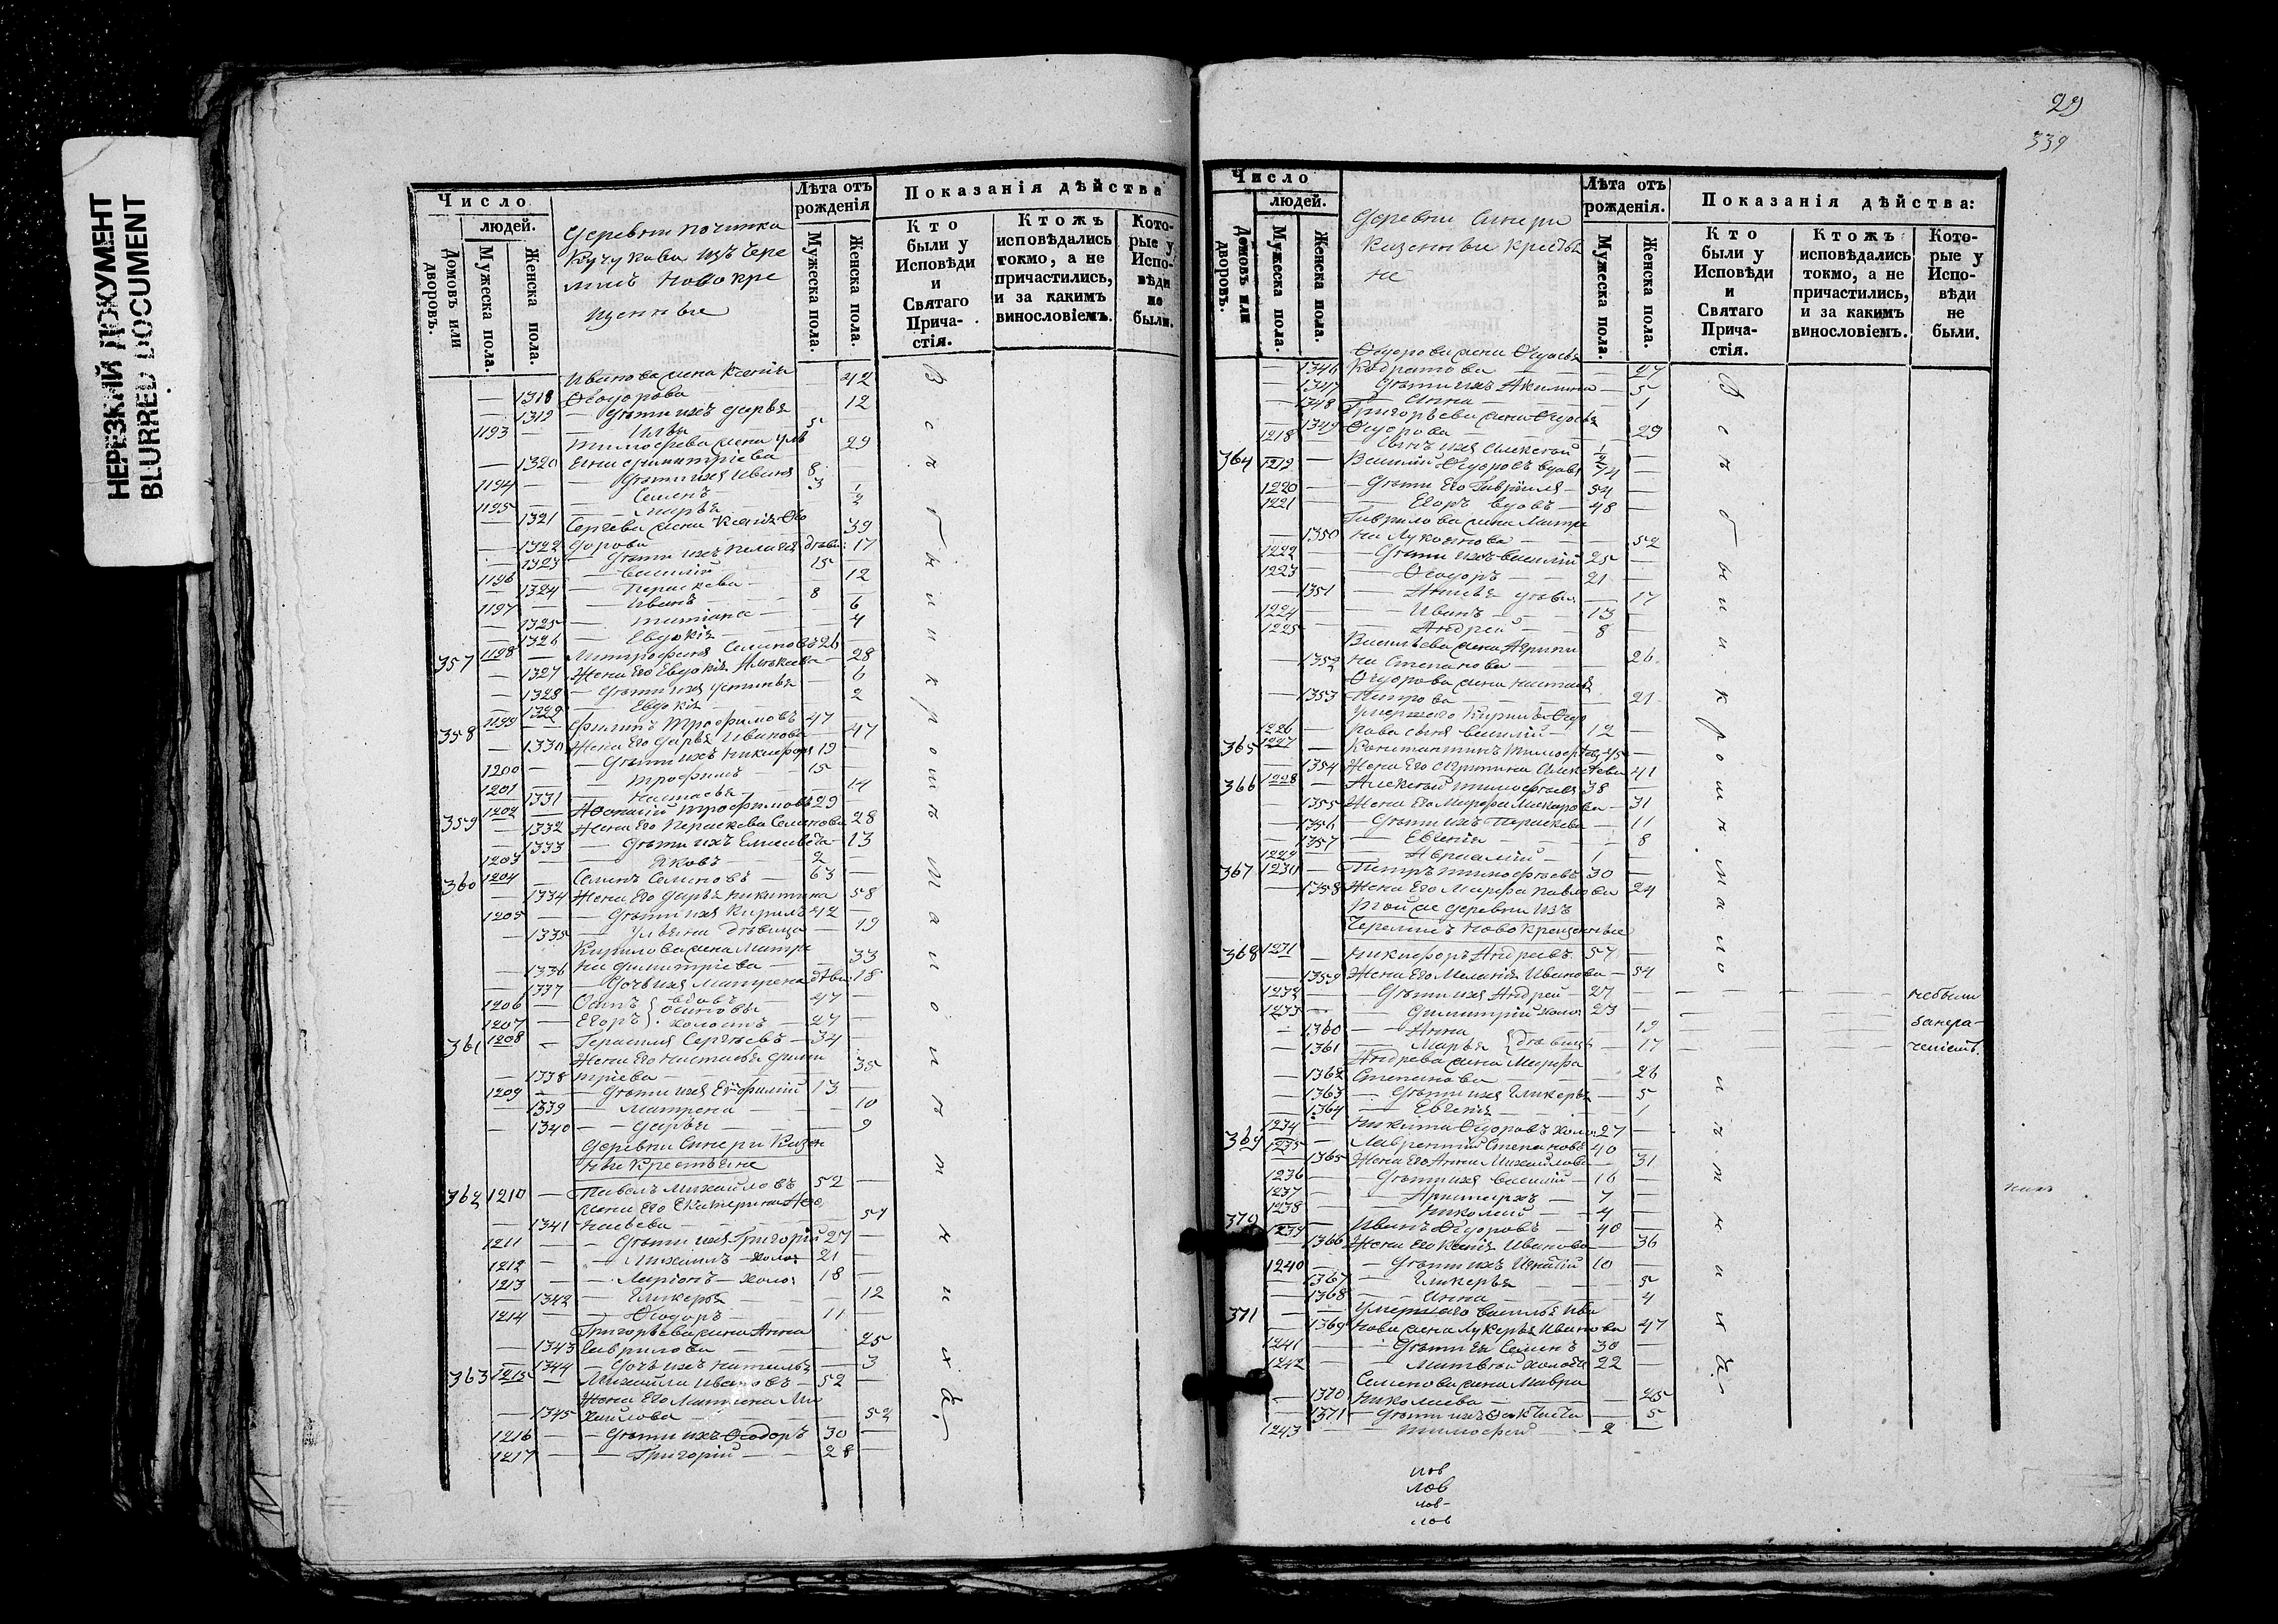 НЕРЕЗКИЙ ДОКУМЕНТ
BLURRED DOCUMENT
Число
людей.
Домовъ или дворовъ.
Мужеска пола.
Женска пола.
Деревни починка
Кучукова изъ Чере
мисъ Новокре
щенные
Лѣта отъ рожденія
Мужеска пола.
Женска пола.
Показанія дѣйства
Кто были у Исповѣди и Святаго Прича-стія.
Ктожъ исповѣдались токмо, а не причастились, и за какимъ винословіемъ.
Кото-рые у Испо-вѣди не были.
Иванова жена Ксенія
— 1318 Ѳеодорова 42
— 1319 — Дѣти ихъ Дарья 12
1193 — — Илья 5
Тимофеева жена Уль
— 1320 яна Димитріева 29
1194 — — Дѣти ихъ Иванъ 8 —
1195 — — Семенъ 3
— 1321 — Марья 1/2
Сергева жена Ксенія Ѳео
— 1322 дорова 39
— 1323 — Дѣти ихъ Пелагія дѣви: 17
1196 — — Василій 15 —
— 1324 — Параскева — 12
1197 — — Иванъ 8 —
— 1325 — Татіана — 6
— 1326 — Евдокія 4
357 1198 — Митрофанъ Семеновъ 26
— 1327 Жена Его Евдокія Алексеева — 28
— 1328 — Дѣти ихъ Устинья — 6
— 1329 — Евдокія — 2
358 1199 — Филипъ Трофимовъ 47
— 1330 Жена Его Дарья Иванова — 47
1200 — — Дѣти ихъ Никифоръ 19 —
1201 — — Трофимъ — 15 —
— 1331 — Настасья — 14
359 1202 — Афонасій Трофимовъ 29
— 1332 Жена Его Параскева Семенова 28
— 1333 — Дѣти ихъ Елисавета — 13
1203 — — Яковъ — 2 —
360 1204 — Семенъ Семеновъ — 63 —
— 1334 Жена Его Дарья Никитина 58
1205 — — Дѣти ихъ Кирилъ 42 —
— 1335 — Ульяна дѣвица — 19
Кирилова жена Матре
— 1336 на Димитріева — 33
— 1337 — Дочь ихъ Матрена дѣви: 18
1206 — Осипъ } вдовъ — 47 —
Осиповы
1207 — Егоръ } холостъ — 27 —
361 1208 — Герасимъ Сергѣевъ — 34 —
Жена Его Настасья Дими
— 1338 тріева — 35
1209 — — Дѣти ихъ Евфимій 13 —
— 1339 — Матрена — 10
— 1340 — Дарья — 9
Деревни Синери Казен
ные Крестьяне
362 1210 — Павелъ Михайловъ 52 —
Жена Его Екатерина Афо
— 1341 насьева — 51
1211 — — Дѣти ихъ Григорій 27 —
1212 — — Михаилъ холо: 21
1213 — — Ларіонъ — холо: 18 —
— 1342 — Гликерья — 12
1214 — — Ѳеодоръ — 11
Григорьева жена Анна
— 1343 Гаврилова — 25
— 1344 — Дочь ихъ Наталья — 3
363 1215 — Михаила Ивановъ — 52 —
Жена Его Матрена Ми
— 1345 хаилова — 52
1216 — — Дѣти ихъ Ѳеодоръ 30 —
1217 — — Григорій — 28 —
Всѣ были кромѣ малолѣтнихъ
29
339
Число
людей.
Домовъ или дворовъ.
Мужеска пола.
Женска пола.
Деревни Синери
Казенные Крестья
не
Лѣта отъ рожденія.
Мужеска пола.
Женска пола.
Показанія дѣйства:
Кто были у Исповѣди и Святаго Прича-стія.
Ктожъ исповѣдались токмо, а не причастились, и за какимъ винословіемъ.
Кото-рые у Испо-вѣди не были.
Ѳеодорова жена Ѳедосья
— 1346 Кодратова — 27
— 1347 — Дѣти ихъ Акилина — 5
— 1348 — Анна — 1
Григорьева жена Ѳедосья
— 1349 Ѳедорова — 29
1218 — Сынъ ихъ Алексей 1/2 —
364 1219 — Василій Ѳедоровъ вдовъ 74 —
1220 — — Дѣти Его Гаврила — 54 —
1221 — — Егоръ вдовъ — 48 —
Гаврилова жена Матре
— 1350 на Лукоянова — 52
1222 — — Дѣти ихъ Василій 25 —
1223 — — Ѳеодоръ — 21 —
— 1351 — Анисья дѣви. — 17
1224 — — Иванъ — 13 —
1225 — — Андрей — 8 —
Васильева жена Агрипи
— 1352 на Степанова — 26
Ѳедорова жена Настасья
— 1353 Петрова — 21
Умершего Кирилы Ѳедо
1226 — рова сынъ Василій 12 —
365 1227 — Констаптинъ Тимофѣевъ 45 —
— 1354 Жена Его Агрипина Алексѣева 41
366 1228 — Алексей Тимофѣевъ 38 —
— 1355 Жена Его Марфа Макарова — 31
— 1356 — Дѣти ихъ Параскева — 11
— 1357 — Евгенія — 8
1229 — — Авраамій — 1 —
367 1230 — Петръ Тимофѣевъ 30 —
— 1358 Жена Его Марфа Павлова 24
Той же деревни изъ
Черемисъ Новокрещенные
368 1231 — Никифоръ Андреевъ 57 —
— 1359 Жена Его Меланія Иванова — 54
1232 — — Дѣти ихъ Андрей — 27 — небыли
1233 — — Димитрій холо: 23 —
— 1360 — Анна — 19 занера-
— 1361 — Марья } дѣвицы — 17 ченіемъ.
Андреева жена Марфа
— 1362 Степанова — 26
— 1363 — Дѣти ихъ Гликерья — 5
— 1364 — Евгенія — 1
1234 — Никита Ѳедоровъ холо: 27 —
369 1235 — Лаврентій Степановъ 40 —
— 1365 Жена Его Анна Михайлова 31
1236 — — Дѣти ихъ Василій — 10 —
1237 — — Аристархъ — 7 —
1238 — — Николай — 4 —
370 1239 — Иванъ Ѳедоровъ — 40 —
— 1366 Жена Его Ксенія Иванова — 36
1240 — — Дѣти ихъ Игнатій 10 —
— 1367 — Гликерья — 5
— 1368 — Анна — 4
371 Умершаго Василья Ива
— 1369 нова жена Лукерья Иванова 47
1241 — — Дѣти Ея Семенъ 30 —
1242 — — Матвѣй холостъ 22 —
Семенова жена Мавра
— 1370 Николаева — 25
— 1371 — Дѣти ихъ Ѳеклиста — 5
1243 — — Тимофей — 2 —
Всѣ были кромѣ мало лѣтнихъ
лов
лов
лов-
лов